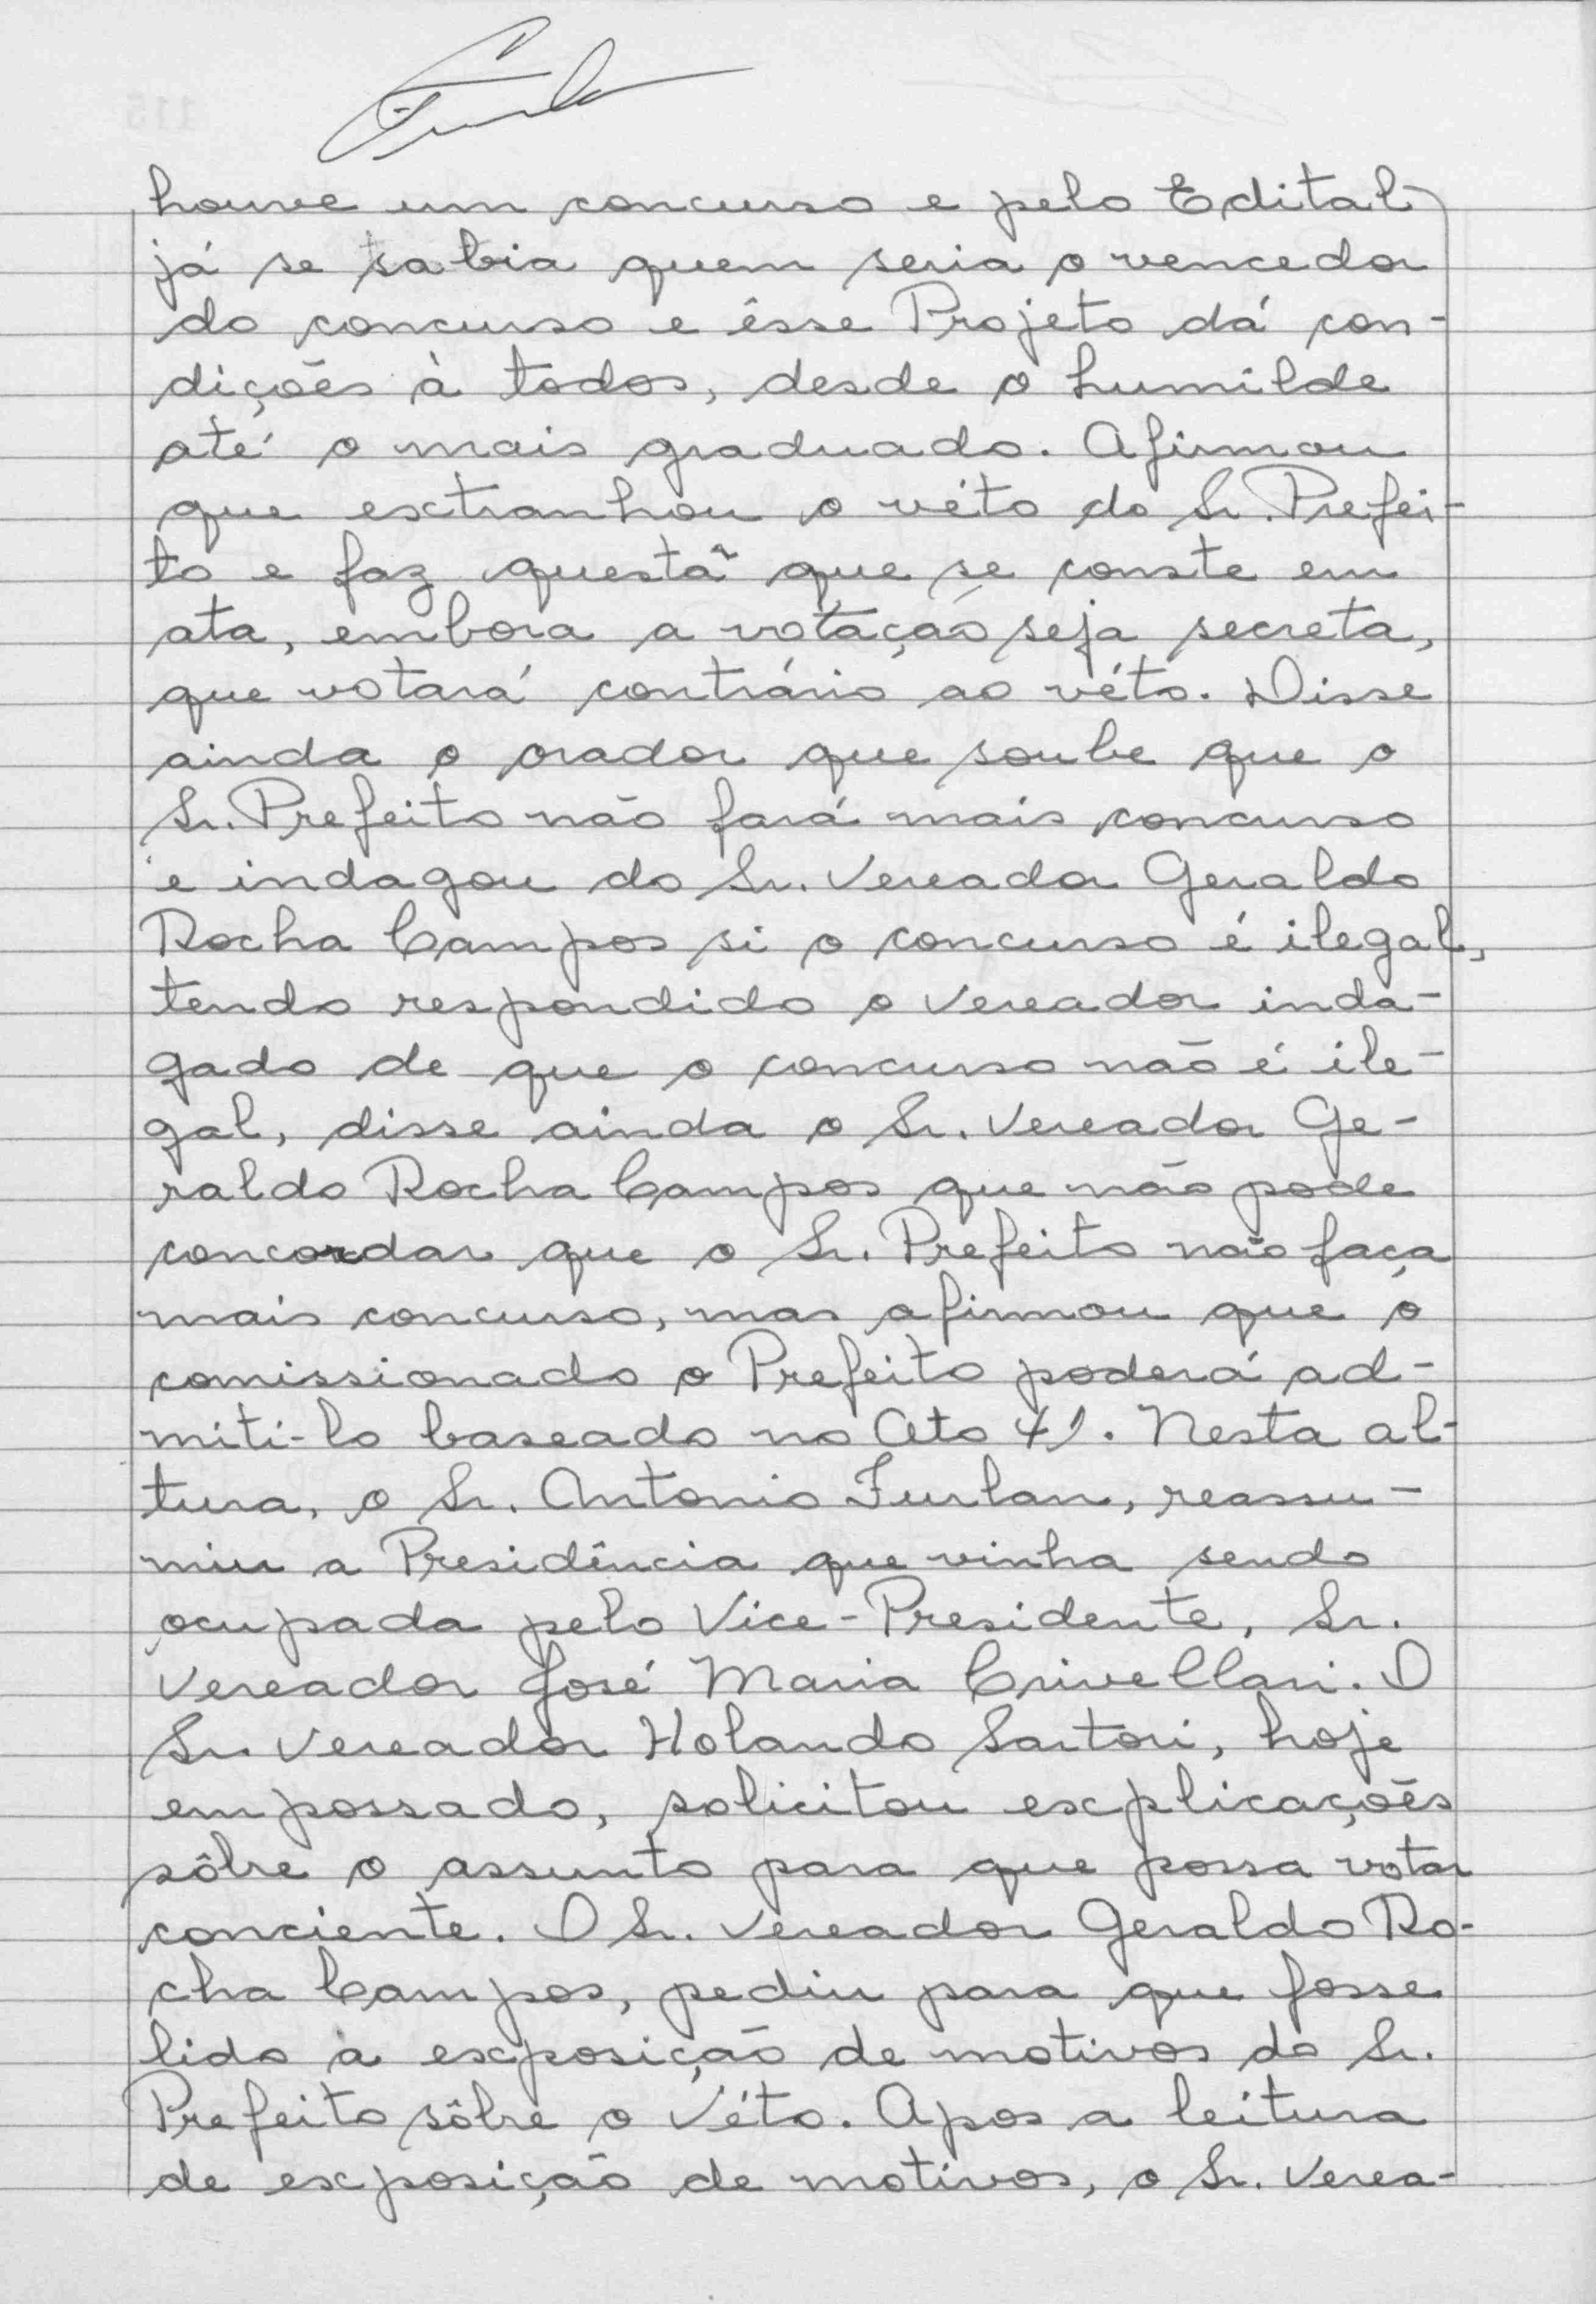 houve um concurso e pelo Edital
já se sabia quem seria o vencedor
do concurso e êsse Projeto dá con-
dições à todos, desde o humilde
até o mais graduado. Afirmou
que extranhou o véto do Sr. Prefei-
to e faz questã que se conste em
ata, embora a votação seja secreta,
que votará contrário ao véto. Disse
ainda o orador que soube que o
Sr. Prefeito não fará mais concurso
e indagou do Sr. Vereador Geraldo
Rocha Campos si o concurso é ilegal,
tendo respondido o Vereador inda-
gado de que o concurso não é ile-
gal, disse ainda o Sr. Vereador Ge-
raldo Rocha Campos que não pode
concordar que o Sr. Prefeito não faça
mais concurso, mas afirmou que o
comissionado o Prefeito poderá ad-
miti-lo baseado no Ato 41. Nesta al-
tura, o Sr. Antonio Furlan, reassu-
miu a Presidência que vinha sendo
ocupada pelo Vice-Presidente, Sr.
Vereador José Maria Crivellari. O
Sr. Vereador Holando Sartori, hoje
empossado, solicitou explicações
sôbre o assunto para que possa votar
conciente. O Sr. Vereador Geraldo Ro-
cha Campos, pediu para que fosse
lido a exposição de motivos do Sr.
Prefeito sôbre o Véto. Apos a leitura
de exposição de motivos, o Sr. Verea-